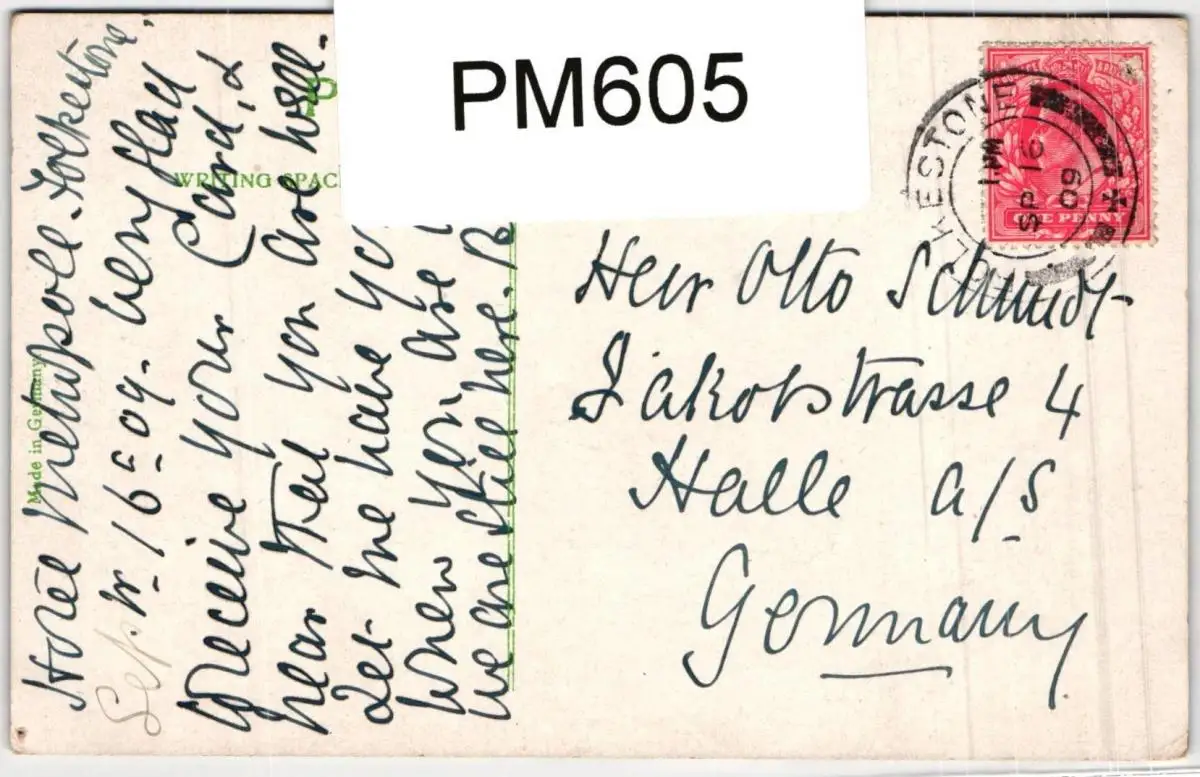 PM605
WRITING SPAC
Made in Germany
Hotel Metropole. Folkestone.
Septr 16th 09. Very glad
to receive your Card, &
hear that you are well.
Let me have yo
when you are
we are still here.
FOLKESTONE
1 PM
SP 16
09
ONE PENNY
Herr Otto Schmidt
Jakobstrasse 4
Halle a/S
Germany